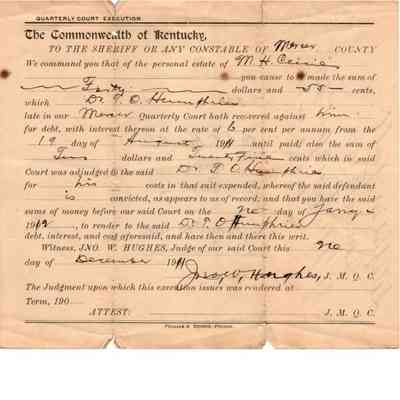 QUARTERLY COURT EXECUTION
The Commonwealth of Kentucky,
TO THE SHERIFF OR ANY CONSTABLE OF Mercer COUNTY
We command you that of the personal estate of M. H.
you cause to be made the sum of
Forty dollars and 55 cents,
which Dr. P. O. Humphries
late in our Mercer Quarterly Court hath recovered against him
for debt, with interest thereon at the rate of 6 per cent per annum from the
19 day of August 1911 until paid; also the sum of
Two dollars and Twenty Five cents which in said
Court was adjudged to the said Dr. P. O. Humphries
for his costs in that suit expended, whereof the said defendant
is convicted, as appears to us of record; and that you have the said
sums of money before our said Court on the day of
1912, to render to the said Dr. P. O. Humphries
debt, interest, and cost aforesaid, and have then and there this writ.
Witness, JNO. W. HUGHES, Judge of our said Court this
day of December 1911
Jno. W. Hughes, J. M. Q. C.
The Judgment upon which this execution issues was rendered at
Term, 190
ATTEST: J. M. Q. C.